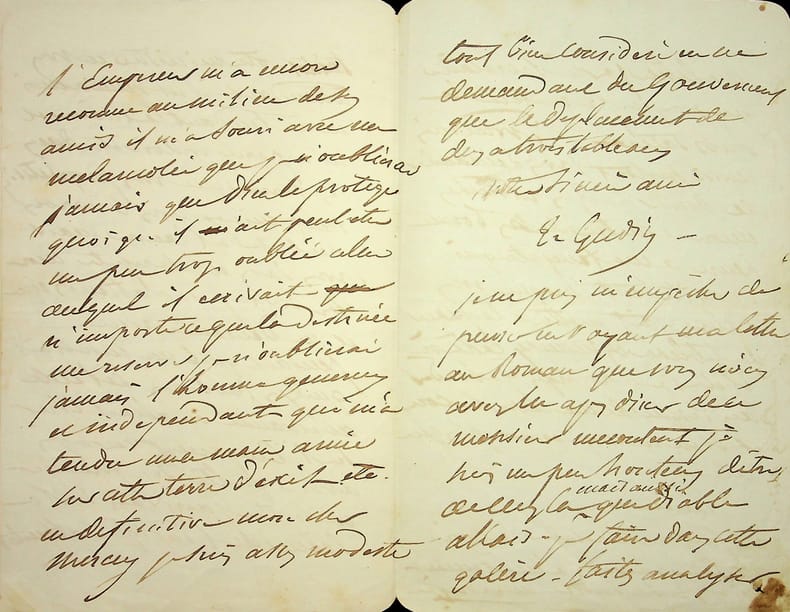 l'Empereur m'a encore
reconnu au milieu de ses
amis il m'a souri avec une
melancolie que je n'oublierai
jamais que Dieu le protège
quoique il m'ait peut etre
un peu trop oublié celui
auquel il ecrivait que
n'importe ce que la destinée
me reserve je n'oublierai
jamais l'homme genereux
et independant qui m'a
tendu une main amie
sur cette terre d'éxil etc.
en definitive mon cher
Mercey je suis assez modeste
tout bien consideré en ne
demandant du Gouvernement
que le deplacement de
deux a trois tableaux
votre sincère ami
Gudin
je ne puis m'empécher de
penser en voyant ma lettre
au Roman que vous nous
avez lu apres diner de ce
monsieur mecontent je
suis un peu honteux d'être
de ceux la mais aussi que diable
allais-je faire dans cette
galère - faites analyser